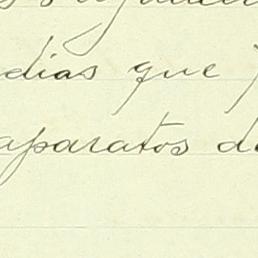 dias que
aparatos de